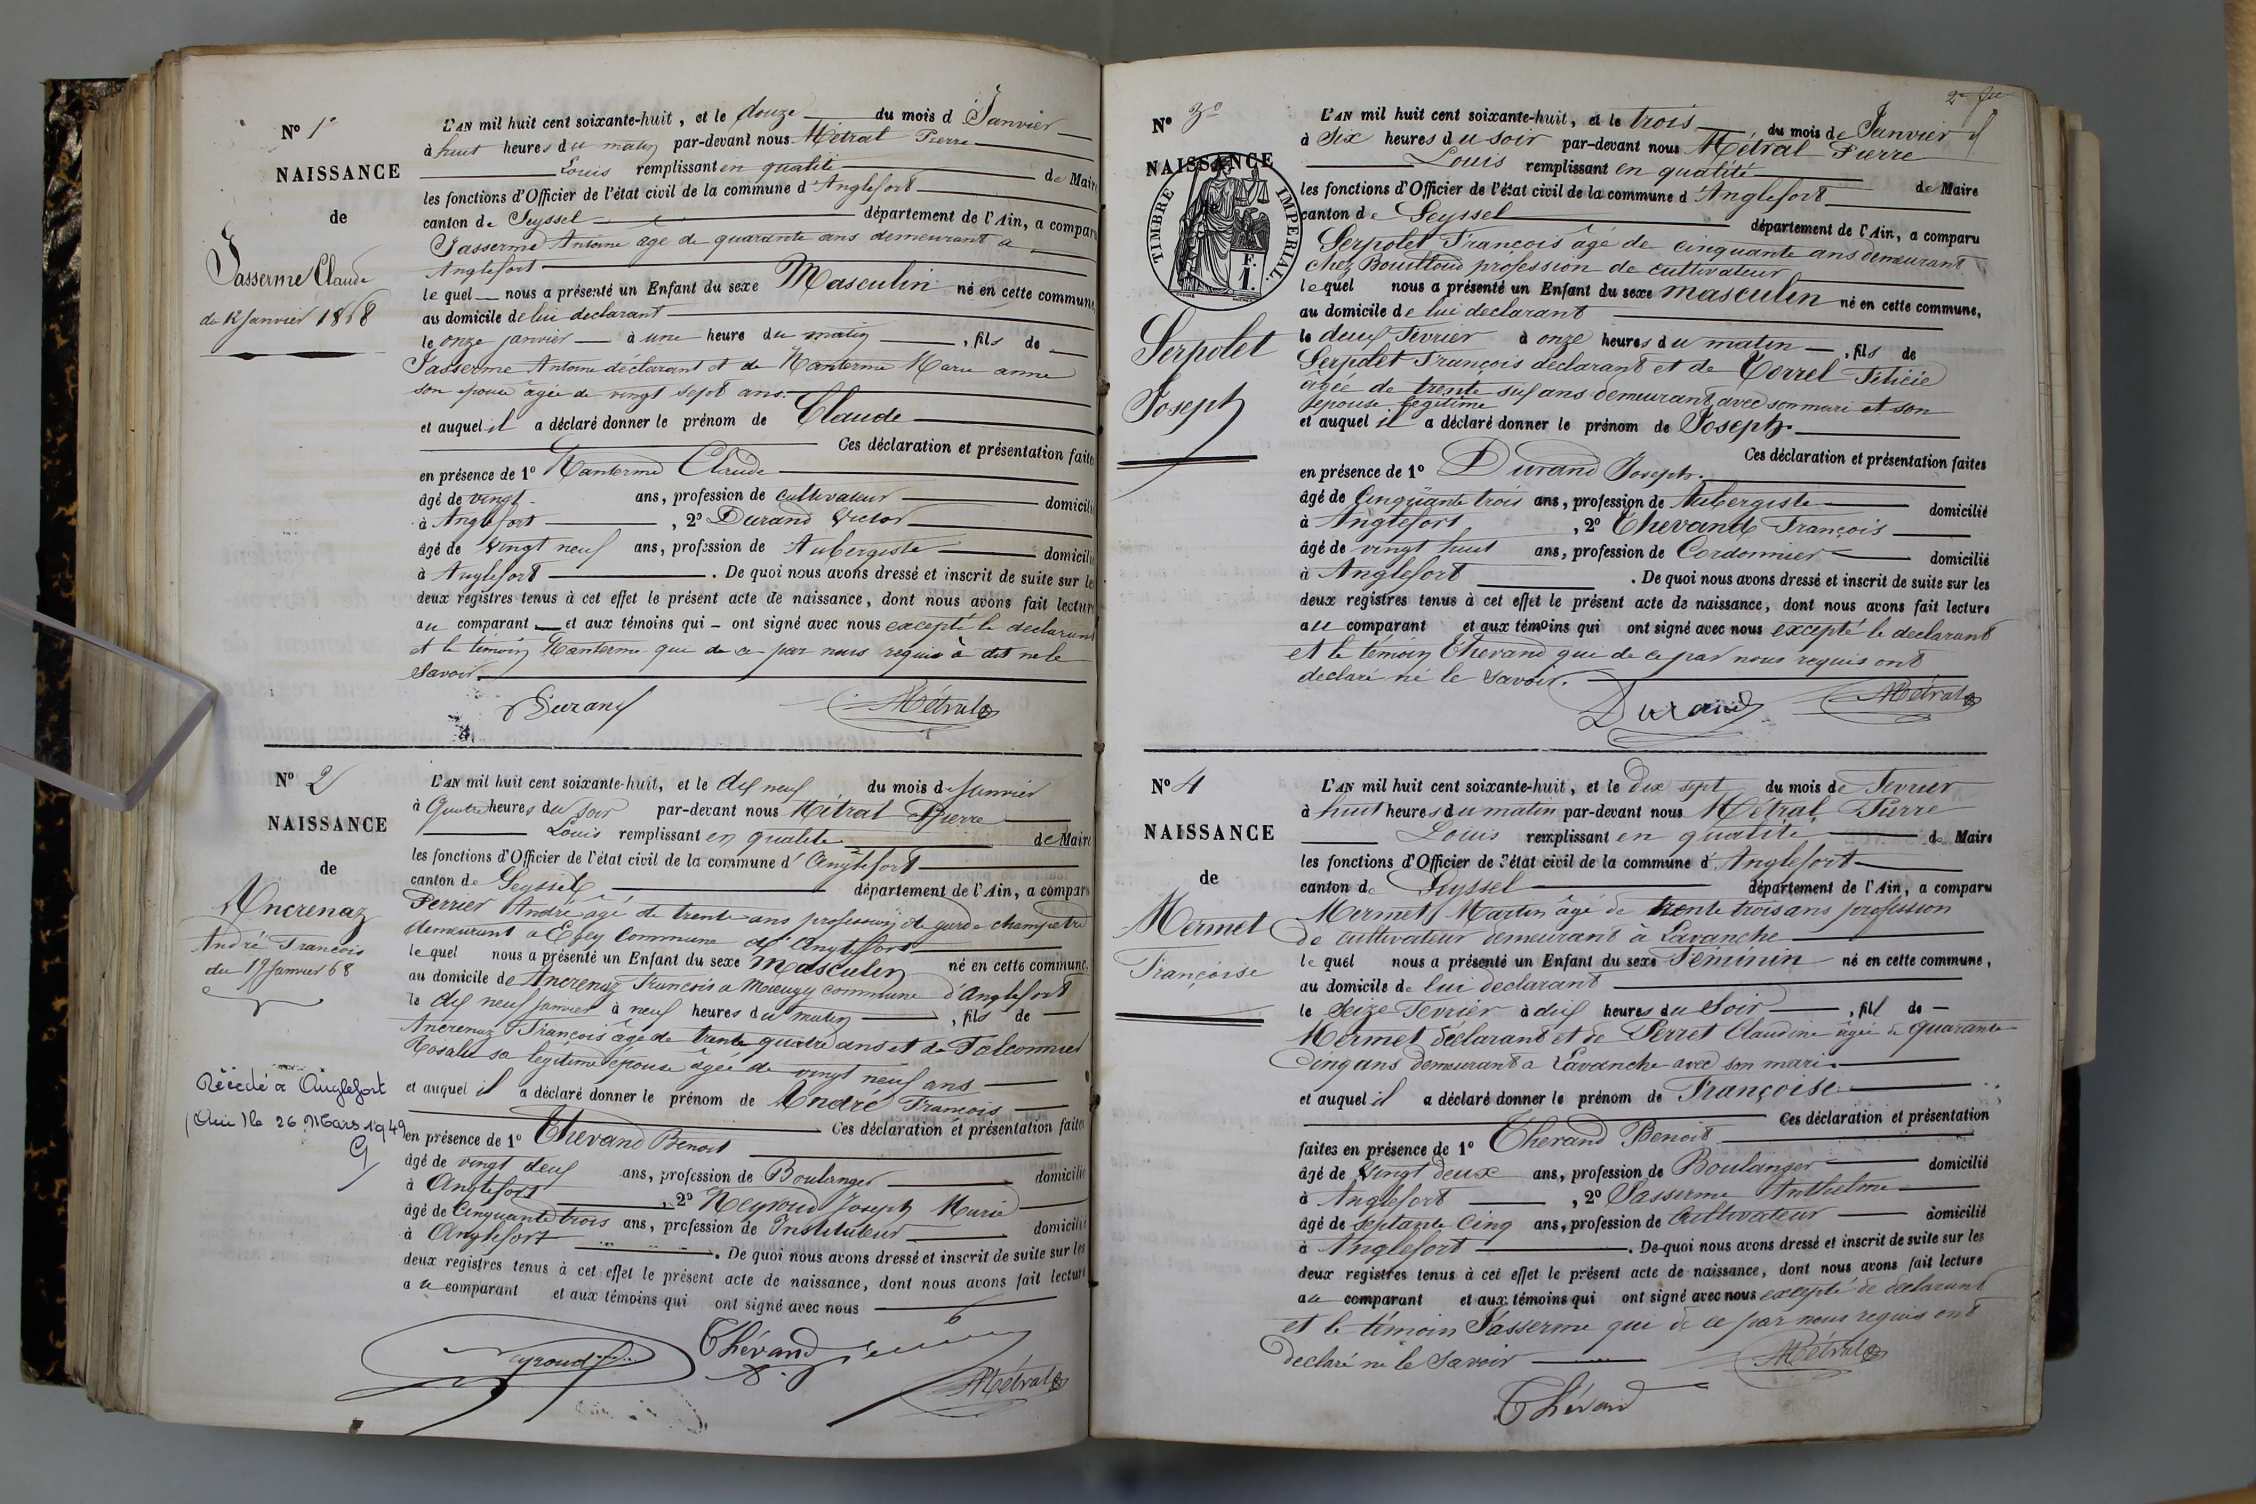 N° 1°
NAISSANCE
de
Jasserme Claude
du 12 Janvier 1868
L'AN mil huit cent soixante-huit, et le douze du mois d Janvier
à huit heures du matin par-devant nous Métral Pierre
Louis remplissant en qualité de Maire
les fonctions d'Officier de l'état civil de la commune d'Anglefort
canton de Seyssel département de l'Ain, a comparu
Jasserme Antoine âgé de quarante ans demeurant à
Anglefort
le quel nous a présenté un Enfant du sexe Masculin né en cette commune,
au domicile de lui declarant
le onze janvier à une heure du matin, fils de
Jasserme Antoine déclarant et de Nanterme Marie anne
son epouse âgée de vingt sept ans
et auquel il a déclaré donner le prénom de Claude
Ces déclaration et présentation faites
en présence de 1° Nanterme Claude
âgé de vingt ans, profession de cultivateur domicilié
à Anglefort, 2° Durand Victor
âgé de Vingt neuf ans, profession de Aubergiste domicilié
à Anglefort. De quoi nous avons dressé et inscrit de suite sur les
deux registres tenus à cet effet le présent acte de naissance, dont nous avons fait lecture
au comparant et aux témoins qui ont signé avec nous excepté le declarant
et le témoin Nanterme que de ce par nous requis à dit ne le
Savoir.
Durand Métral
N° 2
NAISSANCE
de
Ancrenaz
André François
du 19 Janvier 68
Décédé à Anglefort
(Ain) le 26 Mars 1949
L'AN mil huit cent soixante-huit, et le dix neuf du mois de Janvier
à Quatre heures du soir par-devant nous Métral Pierre
Louis remplissant en qualité de Maire
les fonctions d'Officier de l'état civil de la commune d'Anglefort
canton de Seyssel département de l'Ain, a comparu
Perrier André âgé de trente ans profession de garde champetre
demeurant a Efey Commune d'Anglefort
le quel nous a présenté un Enfant du sexe Masculin né en cette commune,
au domicile de Ancrenaz François a commune d'Anglefort
le dix neuf janvier à neuf heures du matin, fils de
Ancrenaz François âgé de trente quatre ans et de Falconnier
Rosalie sa legitime epouse âgée de vingt neuf ans
et auquel il a déclaré donner le prénom de André François
Ces déclaration et présentation faites
en présence de 1° Thevand Benoit
âgé de vingt deux ans, profession de Boulanger domicilié
à Anglefort, 2° Neyroud Joseph Marie
âgé de Cinquante trois ans, profession de Instituteur domicilié
à Anglefort. De quoi nous avons dressé et inscrit de suite sur les
deux registres tenus à cet effet le présent acte de naissance, dont nous avons fait lecture
au comparant et aux témoins qui ont signé avec nous
Neyroud Thévand Métral
2e
N° 3°
NAISSANCE
TIMBRE IMPERIAL.
F.
1.
Serpolet
Joseph
L'AN mil huit cent soixante-huit, et le trois du mois de Janvier
à Six heures du soir par-devant nous Métral Pierre
Louis remplissant en qualité de Maire
les fonctions d'Officier de l'état civil de la commune d'Anglefort
canton de Seyssel département de l'Ain, a comparu
Serpolet François âgé de cinquante ans demeurant
chez Bouilloud profession de cultivateur
le quel nous a présenté un Enfant du sexe masculin né en cette commune,
au domicile de lui declarant
le deux Fevrier à onze heures du matin, fils de
Serpolet François declarant et de Correl Félicie
âgée de trente six ans demeurant avec son mari et son
epouse legitime
et auquel il a déclaré donner le prénom de Joseph.
Ces déclaration et présentation faites
en présence de 1° Durand Joseph.
âgé de Cinquante trois ans, profession de Aubergiste domicilié
à Anglefort, 2° Thevand François
âgé de vingt huit ans, profession de Cordonnier domicilié
à Anglefort. De quoi nous avons dressé et inscrit de suite sur les
deux registres tenus à cet effet le présent acte de naissance, dont nous avons fait lecture
au comparant et aux témoins qui ont signé avec nous excepté le declarant
et le témoin Thevand que de ce par nous requis ont
declaré ne le savoir.
Durand Métral
N° 4
NAISSANCE
de
Mermet
Françoise
L'AN mil huit cent soixante-huit, et le dix sept du mois de Fevrier
à huit heures du matin par-devant nous Métral Pierre
Louis remplissant en qualité de Maire
les fonctions d'Officier de l'état civil de la commune d'Anglefort
canton de Seyssel département de l'Ain, a comparu
Mermet Martin âgé de trente trois ans profession
de cultivateur demeurant à Lavanche
le quel nous a présenté un Enfant du sexe Féminin né en cette commune,
au domicile de lui declarant
le Seize Fevrier à dix heures du Soir, fil de
Mermet déclarant et de Perret Claudine âgée de quarante
Cinq ans demeurant a Lavanche avec son mari
et auquel il a déclaré donner le prénom de Françoise
Ces déclaration et présentation
faites en présence de 1° Thevand Benoit
âgé de Vingt deux ans, profession de Boulanger domicilié
à Anglefort, 2° Jasserme Anthelme
âgé de Septante Cinq ans, profession de Cultivateur domicilié
à Anglefort. De quoi nous avons dressé et inscrit de suite sur les
deux registres tenus à cet effet le présent acte de naissance, dont nous avons fait lecture
au comparant et aux témoins qui ont signé avec nous excepté de declarant
et le témoin Jasserme que de ce par nous requis ont
declaré ne le Savoir
Métral
Thévand